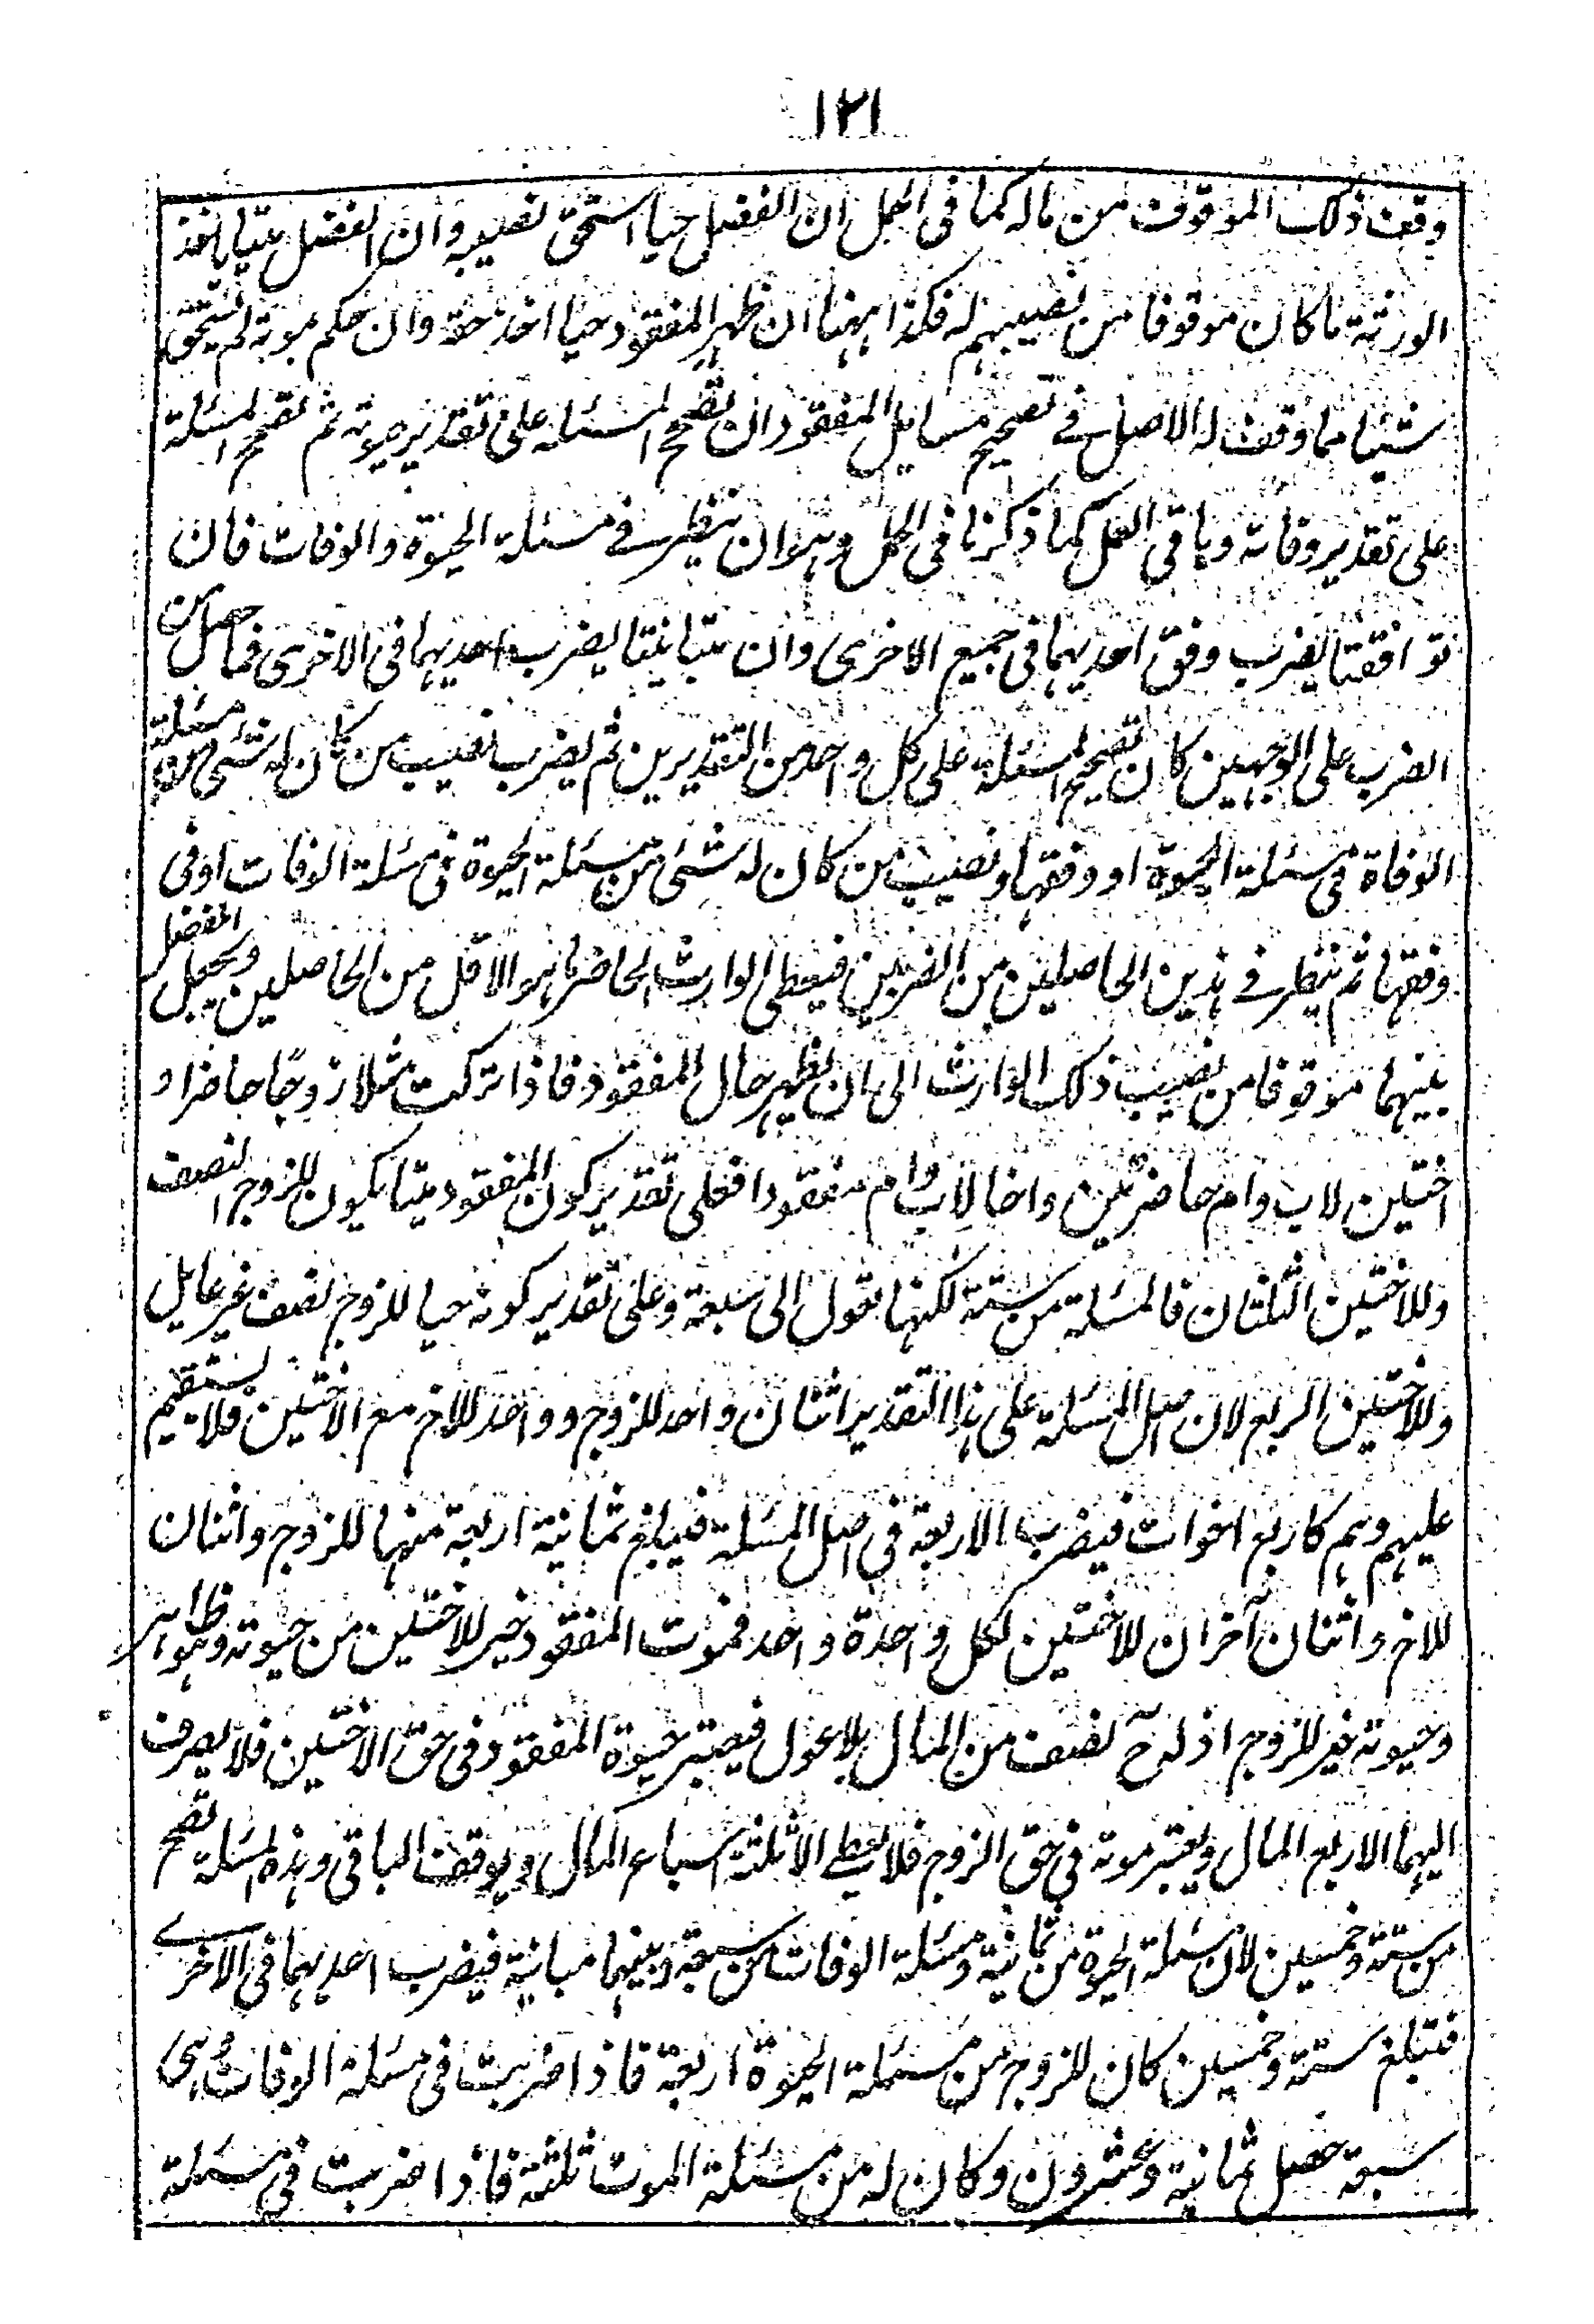 ١٢١
وقف ذلك الموقوف من ماله كما فى الحمل ان انفصل حيا استحق نصيبه وان انفصل ميتا ياخذ
الورثة ما كان موقوفا من نصيبهم له فكذا ههنا ان ظهر المفقود حيا اخذ حقه وان حكم بموته لم يستحق
شيئا مما وقف له الاصل فى تصحيح مسايل المفقود ان تصحح المسئلة على تقدير حيوته ثم تصحح المسئلة
على تقدير وفاته وباقى العمل كما ذكرنا فى الحمل وهو ان ينظر فى مسئلة الحيوة والوفات فان
توافقتا يضرب وفق احديهما فى جميع الاخرى وان تباينتا يضرب احديهما فى الاخرى فما حصل من
الضرب على الوجهين كان تصحيح المسئلة على كل واحد من التقديرين ثم يضرب نصيب من كان له شئ من مسئلة
الوفاة فى مسئلة الحيوة او وفقها ونصيب من كان له شئ من مسئلة الحيوة فى مسئلة الوفات او فى
وفقها ثم ينظر فى هذين الحاصلين من الضربين فيعطى الوارث الحاضر ما هو الاقل من الحاصلين ويجعل الفضل
بينهما موقوفا من نصيب ذلك الوارث الى ان يظهر حال المفقود فاذا تركت مثلا زوجا حاضرا و
اختين لاب وام حاضرتين واخا لاب وام مفقودا فعلى تقدير كون المفقود ميتا يكون للزوج النصف
وللاختين الثلثان فالمسئلة من ستة لكنها تعول الى سبعة وعلى تقدير كونه حيا للزوج نصف غير عايل
وللاختين الربع لان اصل المسئلة على هذا التقدير اثنان واحد للزوج وواحد للاخ مع الاختين فلا يستقيم
عليهم وهم كاربع اخوات فيضرب الاربعة فى اصل المسئلة فيبلغ ثمانية اربعة منها للزوج واثنان
للاخ واثنان آخران للاختين لكل واحدة واحد فموت المفقود خير للاختين من حيوته وهو ظاهر
وحيوته خير للزوج اذ له ح نصف من المال بلا عول فيعتبر حيوة المفقود فى حق الاختين فلا يصرف
اليهما الا ربع المال ويعتبر موته فى حق الزوج فلا يعطى الا ثلثة اسباع المال ويوقف الباقى وهذه المسئلة تصح
من ستة وخمسين لان مسئلة الحيوة من ثمانية ومسئلة الوفات من سبعة وبينهما مباينة فيضرب احديهما فى الاخرى
فتبلغ ستة وخمسين كان للزوج من مسئلة الحيوة اربعة فاذا ضربت فى مسئلة الوفات وهى
سبعة حصل ثمانية وعشرون وكان له من مسئلة الموت ثلثة فاذا ضربت فى مسئلة